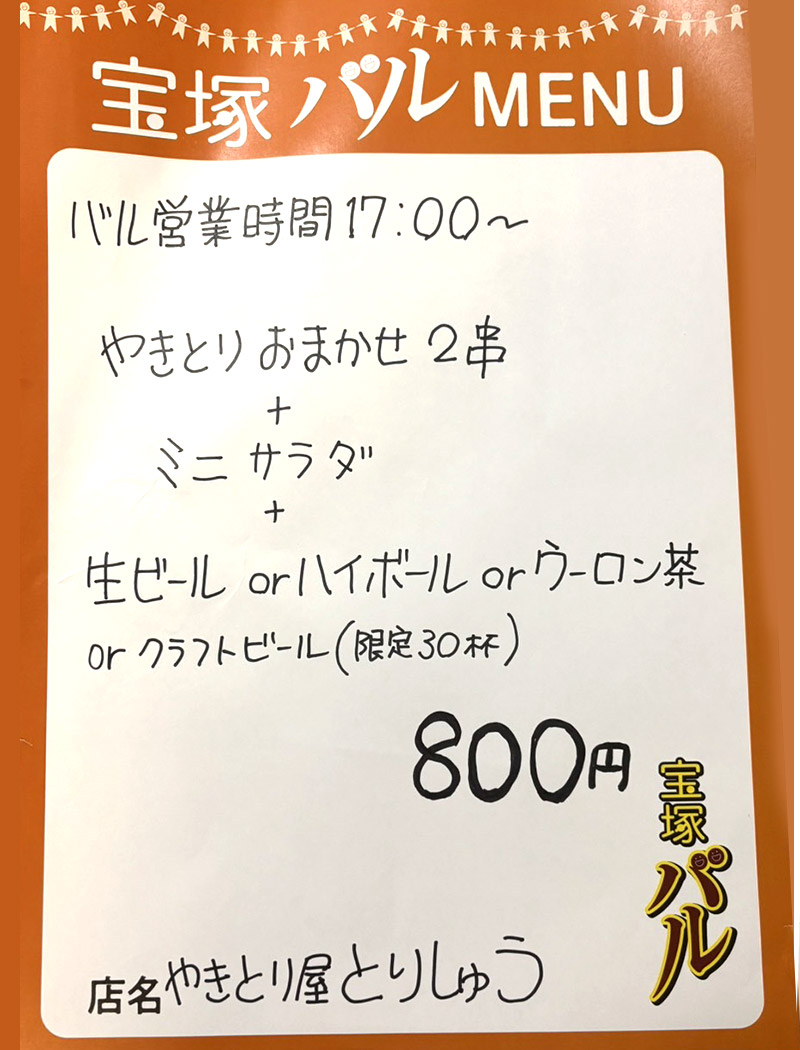 宝塚バルMENU
バル営業時間17:00～
やきとり おまかせ 2串
+
ミニ サラダ
+
生ビール orハイボール orウーロン茶
or クラフトビール(限定30杯)
800円
宝塚バル
店名 やきとり屋 とりしゅう